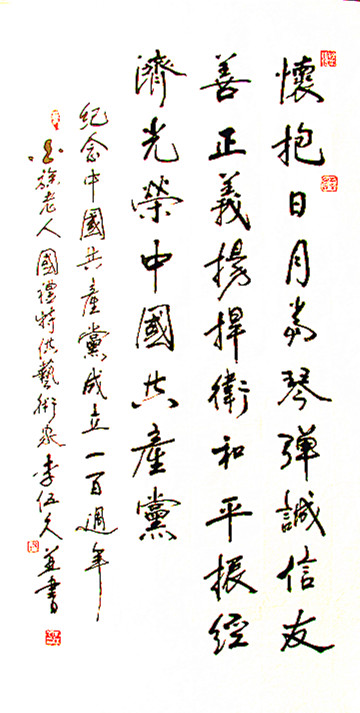 懷抱日月當琴弹誠信友
善正義揚捍衛和平振經
濟光榮中國共產黨
紀念中國共產黨成立一百週年
老人國禮特供藝術家李伍久並書